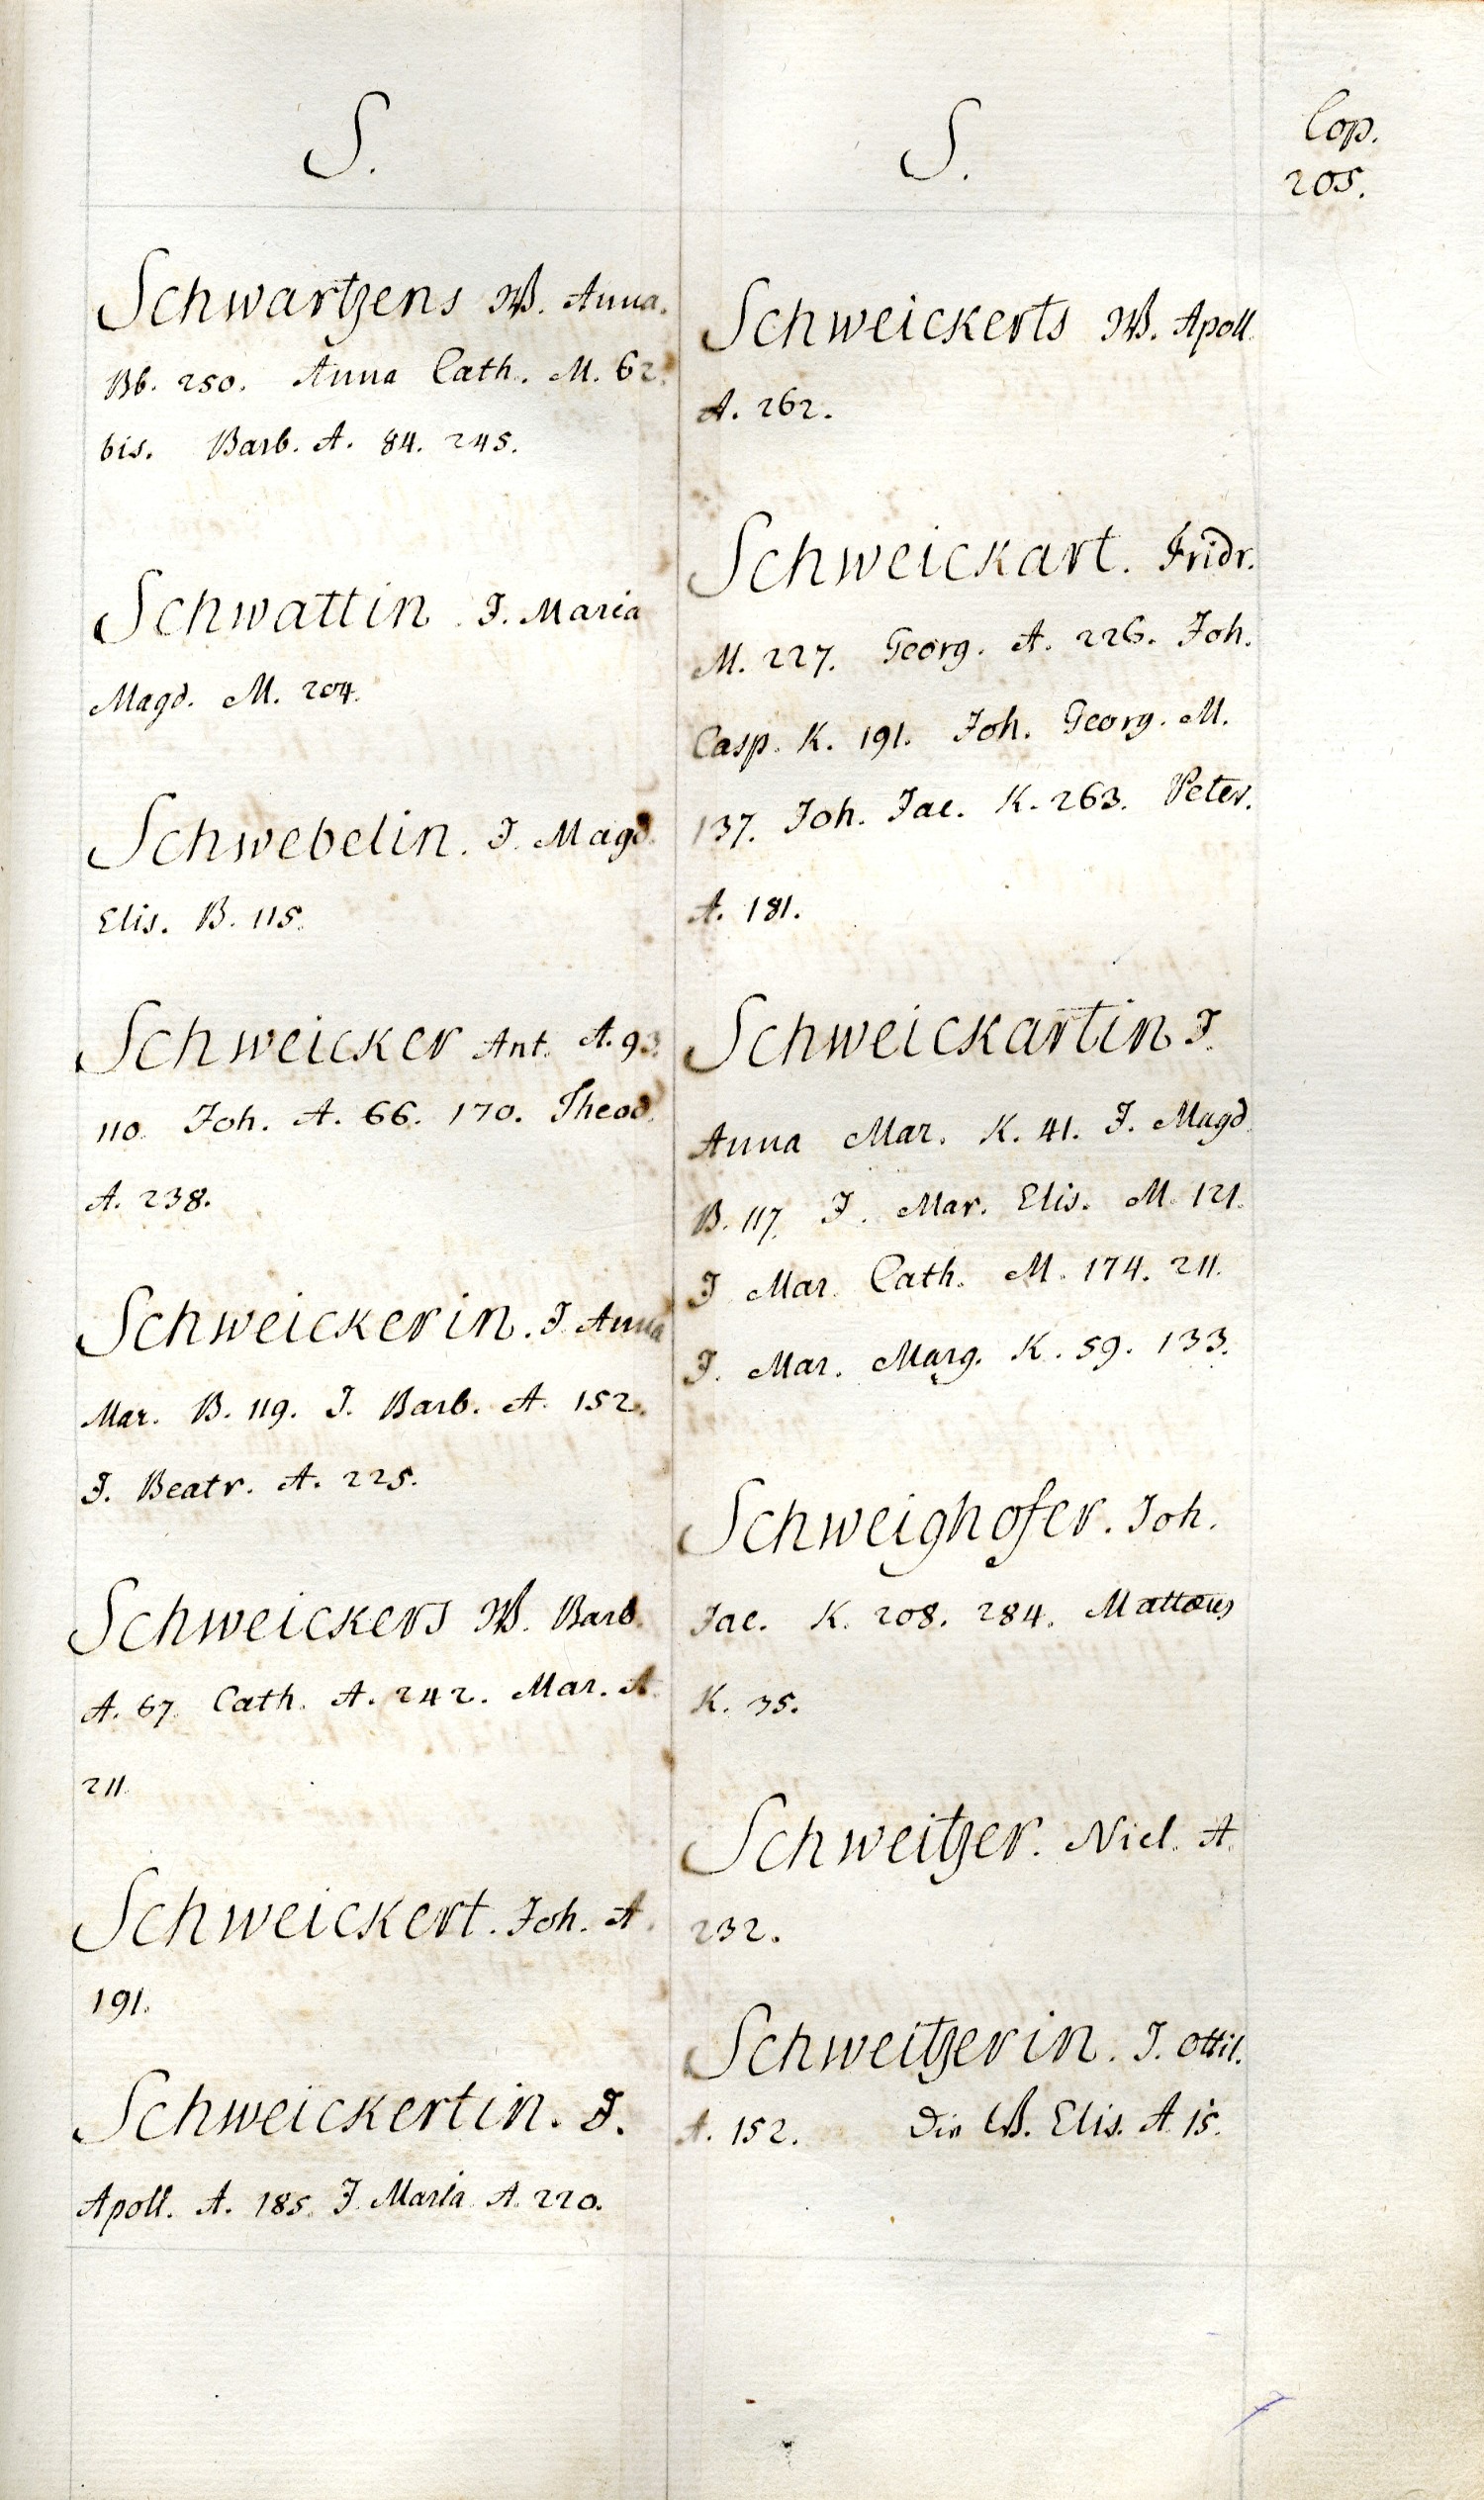 S.
Schwartzens W. Anna.
Bb. 250. Anna Cath. M. 62.
bis. Barb. A. 84. 245.
Schwattin. J. Maria
Magd. M. 204.
Schwebelin. J. Magd.
Elis. B. 115.
Schweicker Ant. A. 93.
110. Joh. A. 66. 170. Theod.
A. 238.
Schweickerin. J. Anna
Mar. B. 119. J. Barb. A. 152.
J. Beatr. A. 225.
Schweickers W. Barb.
A. 67. Cath. A. 242. Mar. A.
211.
Schweickert. Joh. A.
191.
Schweickertin. J.
Apoll. A. 185. J. Maria A. 220.
S.
Schweickerts W. Apoll.
A. 262.
Schweickart. Fridr.
M. 227. Georg. A. 226. Joh.
Casp. K. 191. Joh. Georg. M.
137. Joh. Jac. K. 263. Peter.
A. 181.
Schweickartin J.
Anna Mar. K. 41. J. Magd.
B. 117. J. Mar. Elis. M. 121.
J. Mar. Cath. M. 174. 211.
J. Mar. Marg. K. 59. 133.
Schweighofer. Joh.
Jac. K. 208. 284. Mattæus
K. 35.
Schweitzer. Nicl. A.
232.
Schweitzerin. J. Ottil.
A. 152. Die W. Elis. A. 15.
Cop.
205.